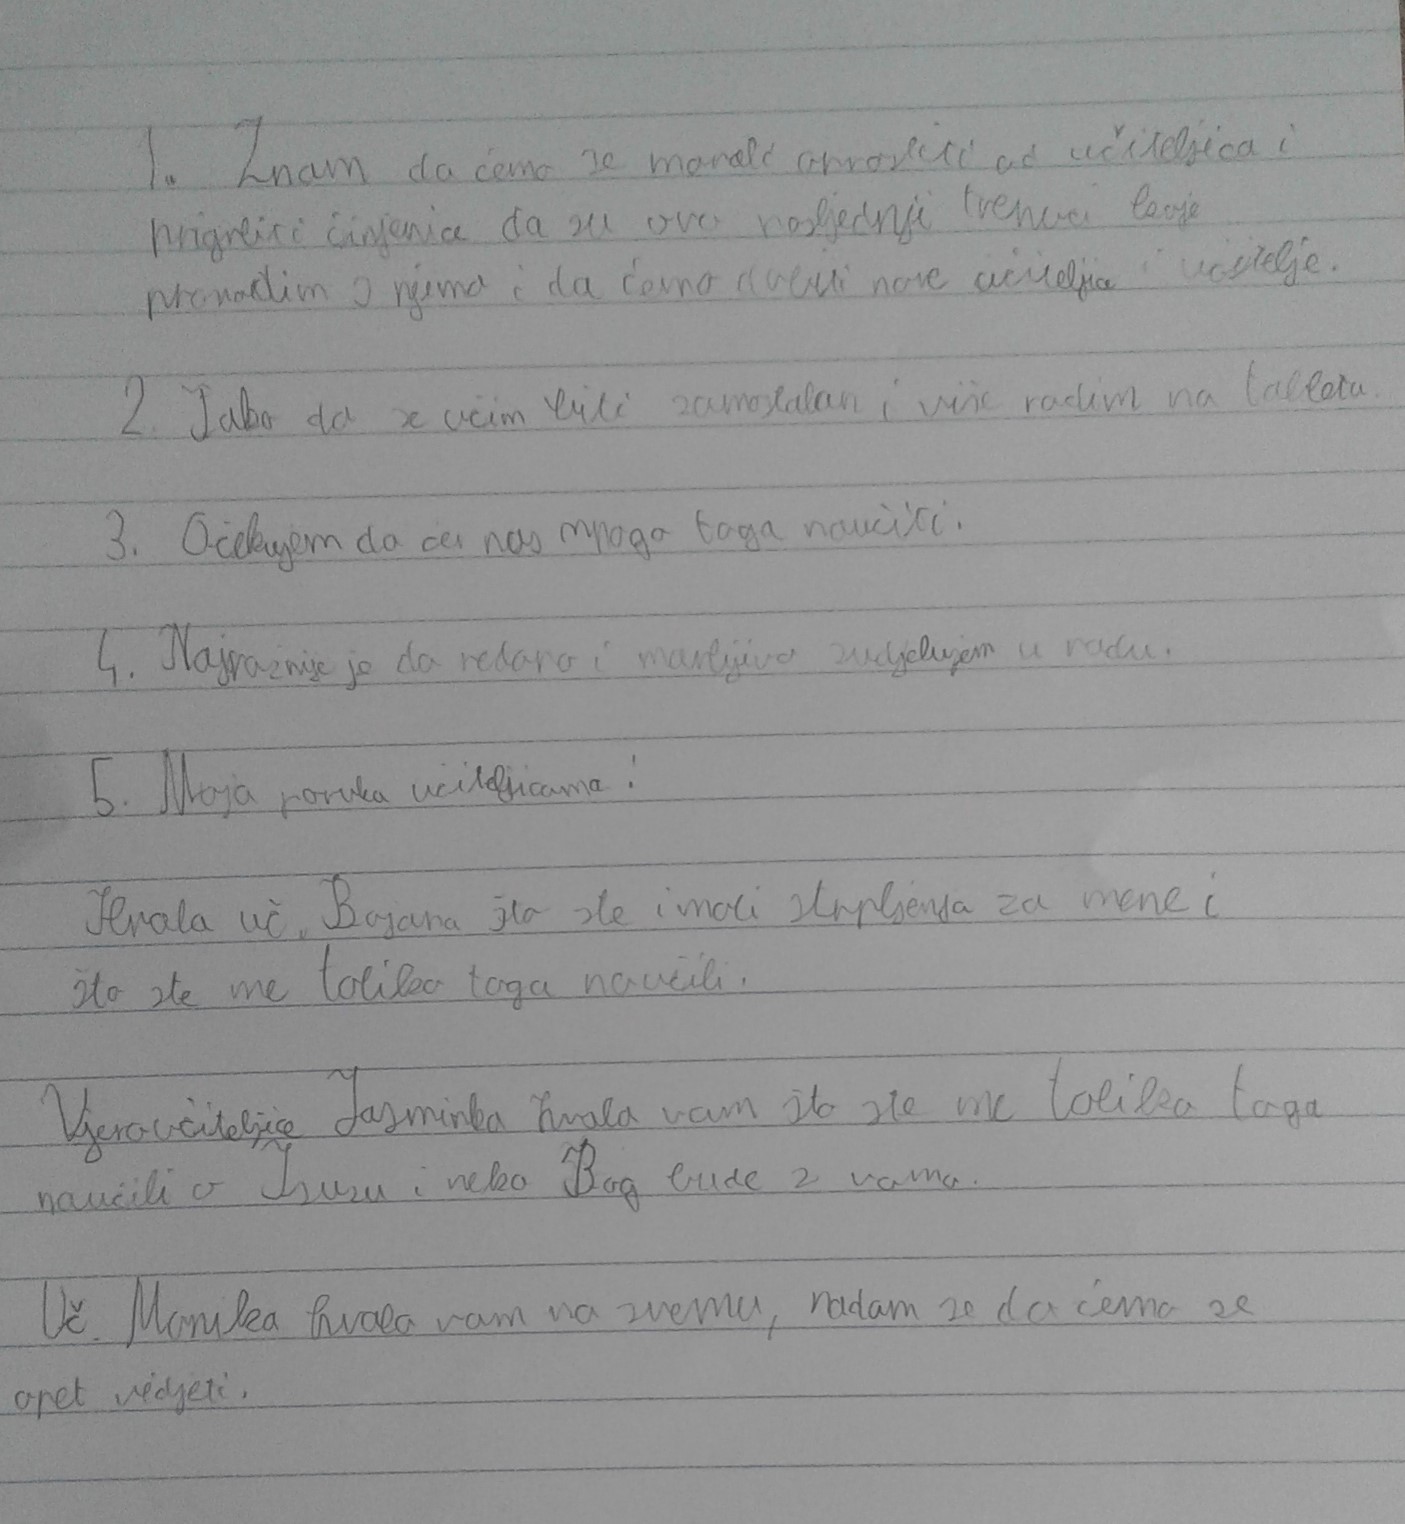 1. Znam da ćemo se morati oprostiti od učiteljica i
prigrliti činjenicu da su ovo posljednji trenuci koje
provodim s njima i da ćemo dobiti nove učiteljice i učitelje.
2. Tako da se učim biti samostalan i više radim na tabletu.
3. Očekujem da će nas mnogo toga naučiti.
4. Najvažnije je da redovno i marljivo sudjelujem u radu.
5. Moja poruka učiteljicama:
Hvala uč. Bojana što ste imali strpljenja za mene i
što ste me toliko toga naučili.
Vjeroučiteljice Jasminka hvala vam što ste me toliko toga
naučili o Isusu i neka Bog bude s vama.
Uč. Monika hvala vam na svemu, nadam se da ćemo se
opet vidjeti.